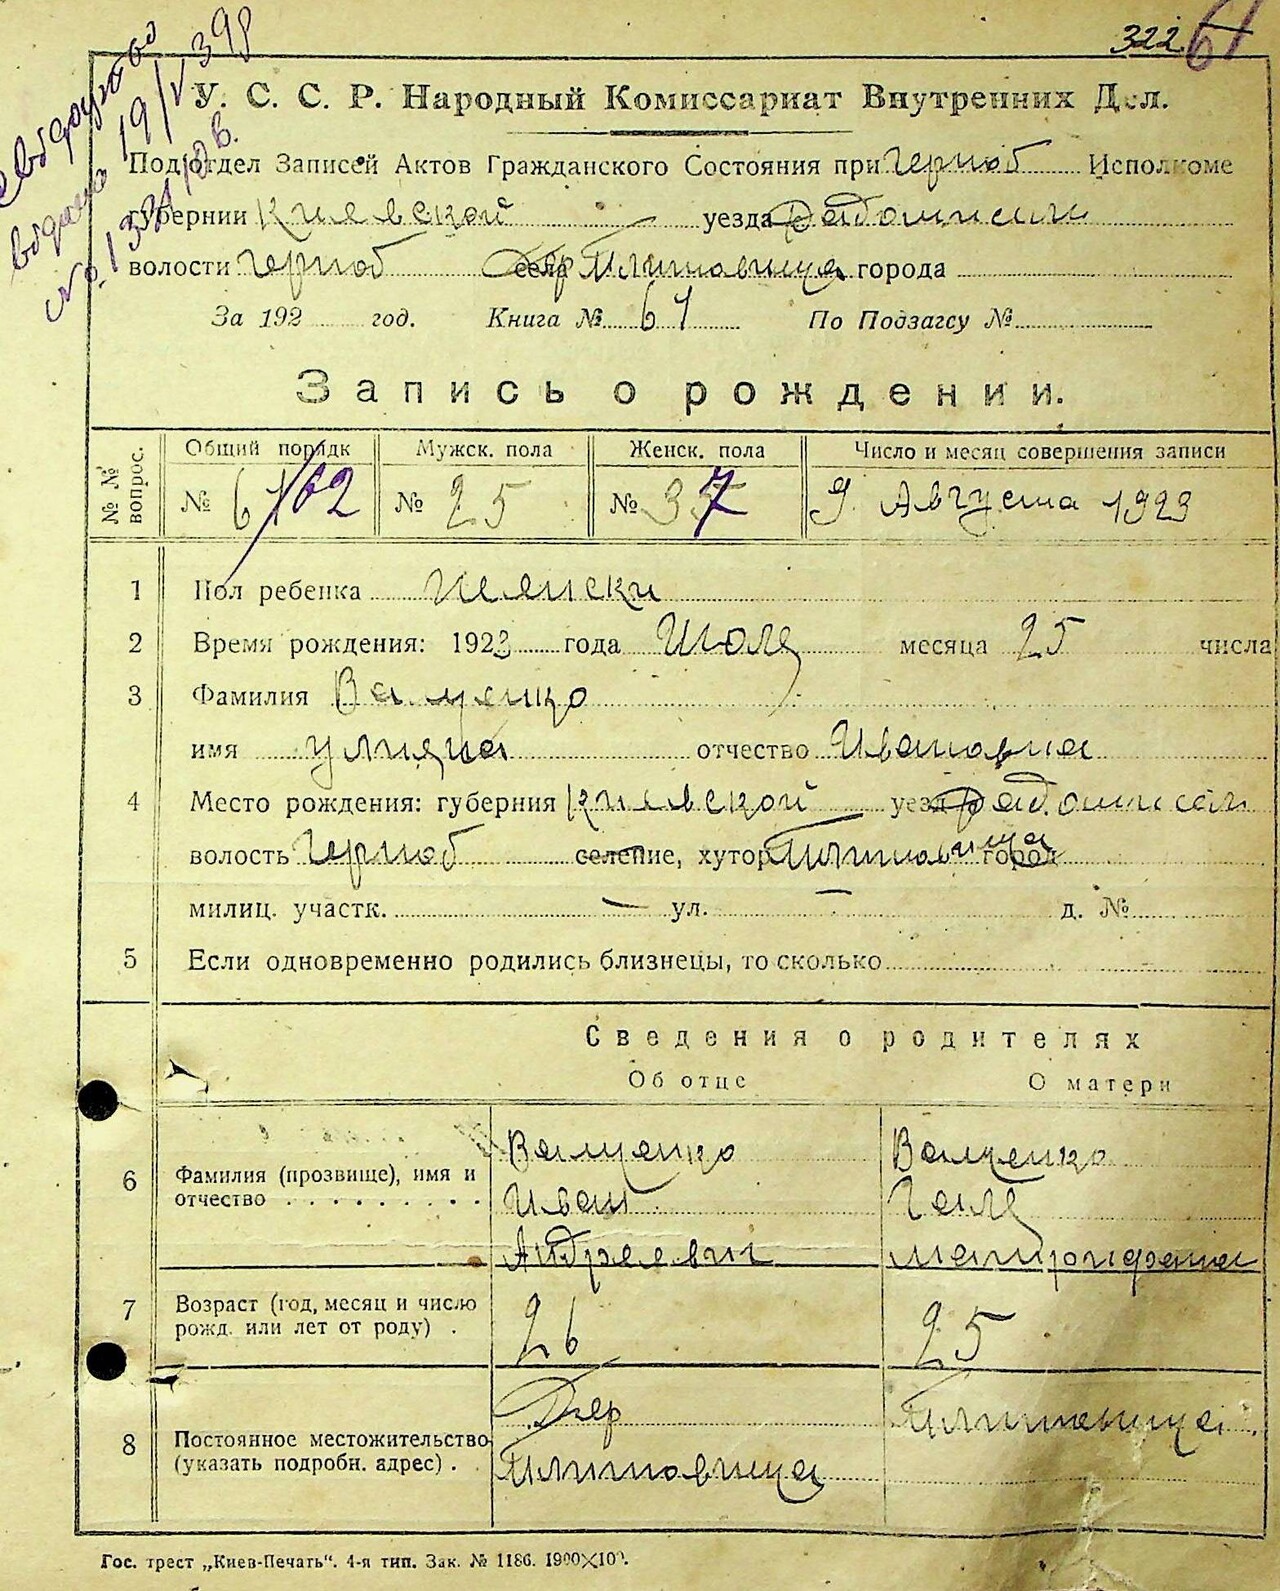 322 61
У. С. С. Р. Народный Комиссариат Внутренних Дел.
Подотдел Записей Актов Гражданского Состояния при Черноб Исполкоме
губернии Киевской уезда Радомысл
волости Черноб села Дер Плитовища города
За 192 год. Книга № 61 По Подзагсу №
Запись о рождении.
№ № вопрос. Общий порядк Мужск. пола Женск. пола Число и месяц совершения записи
№ 61/62 № 25 № 37 9 Августа 1923
1 Пол ребенка женски
2 Время рождения: 1923 года Июля месяца 25 числа
3 Фамилия Ващенко
имя Улияна отчество Ивановна
4 Место рождения: губерния Киевской уезд Радомысл
волость Черноб селение, хутор Плитовища город
милиц. участк. — ул. — д. №
5 Если одновременно родились близнецы, то сколько
Сведения о родителях
Об отце О матери
6 Фамилия (прозвище), имя и отчество Ващенко Ващенко
Иван
Андреевич Митрофана
7 Возраст (год, месяц и число рожд. или лет от роду) . 26 25
8 Постоянное местожительство (указать подробн. адрес) . Дер Плитовища
Плитовища
Гос. трест „Киев-Печать“. 4-я тип. Зак. № 1186. 1900×100.